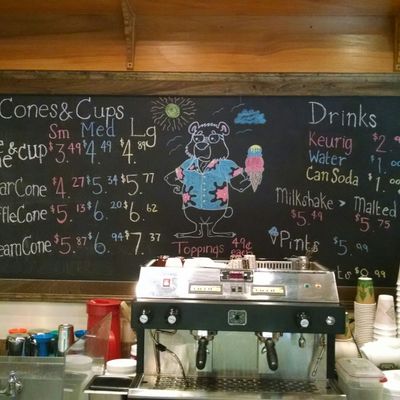 Cones & Cups
Sm Med Lg
& cup $3.49 $4.49 $4.89
ar Cone $4.27 $5.34 $5.77
ffle Cone $5.13 $6.20 $6.62
eam Cone $5.87 $6.94 $7.37
Toppings 49¢ each
Drinks
Keurig $2.
Water $1.
Can Soda $1.
Milkshake > Malted
$5.49 $5.75
Pints $5.99
ts $0.99